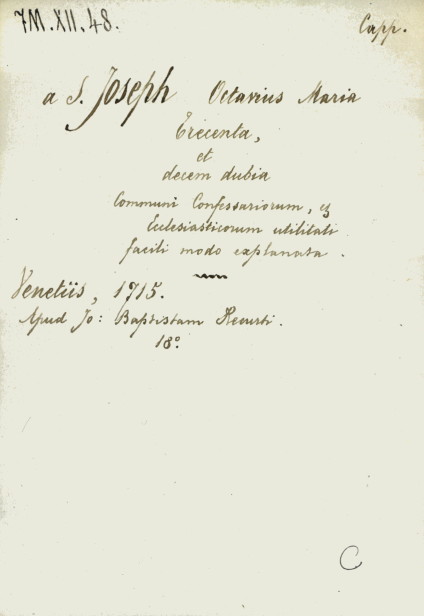 7M.XII.48. Capp.
a S. Joseph Octavius Maria
Trecenta,
et
decem dubia
Communi Confessariorum, et
Ecclesiasticorum utilitati
facili modo explanata.
Venetiis, 1715.
Apud Jo: Baptistam Recurti.
18°
C